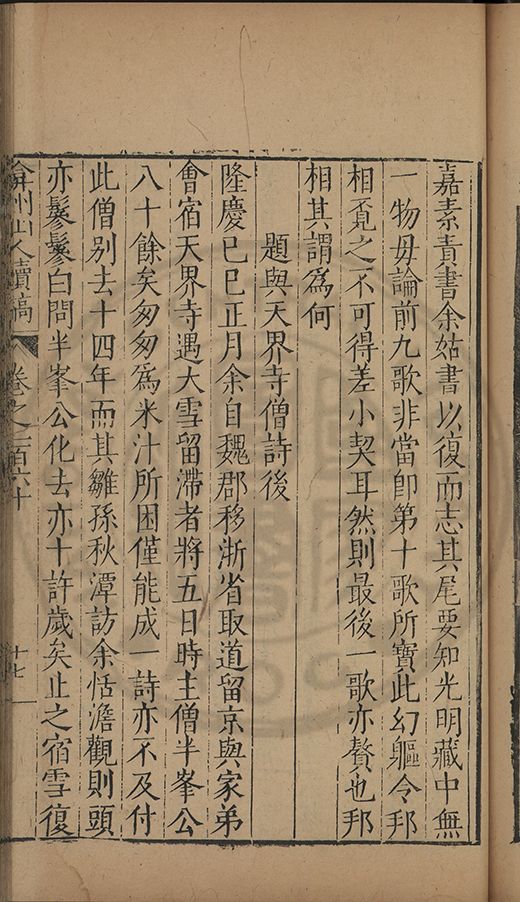 嘉素責書余姑書以復而志其尾要知光明藏中無
一物毋論前九歌非當即第十歌所寶此幻軀令邦
相覔之不可得差小契耳然則最後一歌亦贅也邦
相其謂爲何
題與天界寺僧詩後
隆慶已巳正月余自魏郡移浙省取道留京與家弟
會宿天界寺遇大雪留滯者將五日時主僧半峯公
八十餘矣匆匆爲米汁所困僅能成一詩亦不及付
此僧別去十四年而其雛孫秋潭訪余恬澹觀則頭
亦鬖鬖白問半峯公化去亦十許歲矣止之宿雪復
弇州山人續稿 卷之一百六十 十七